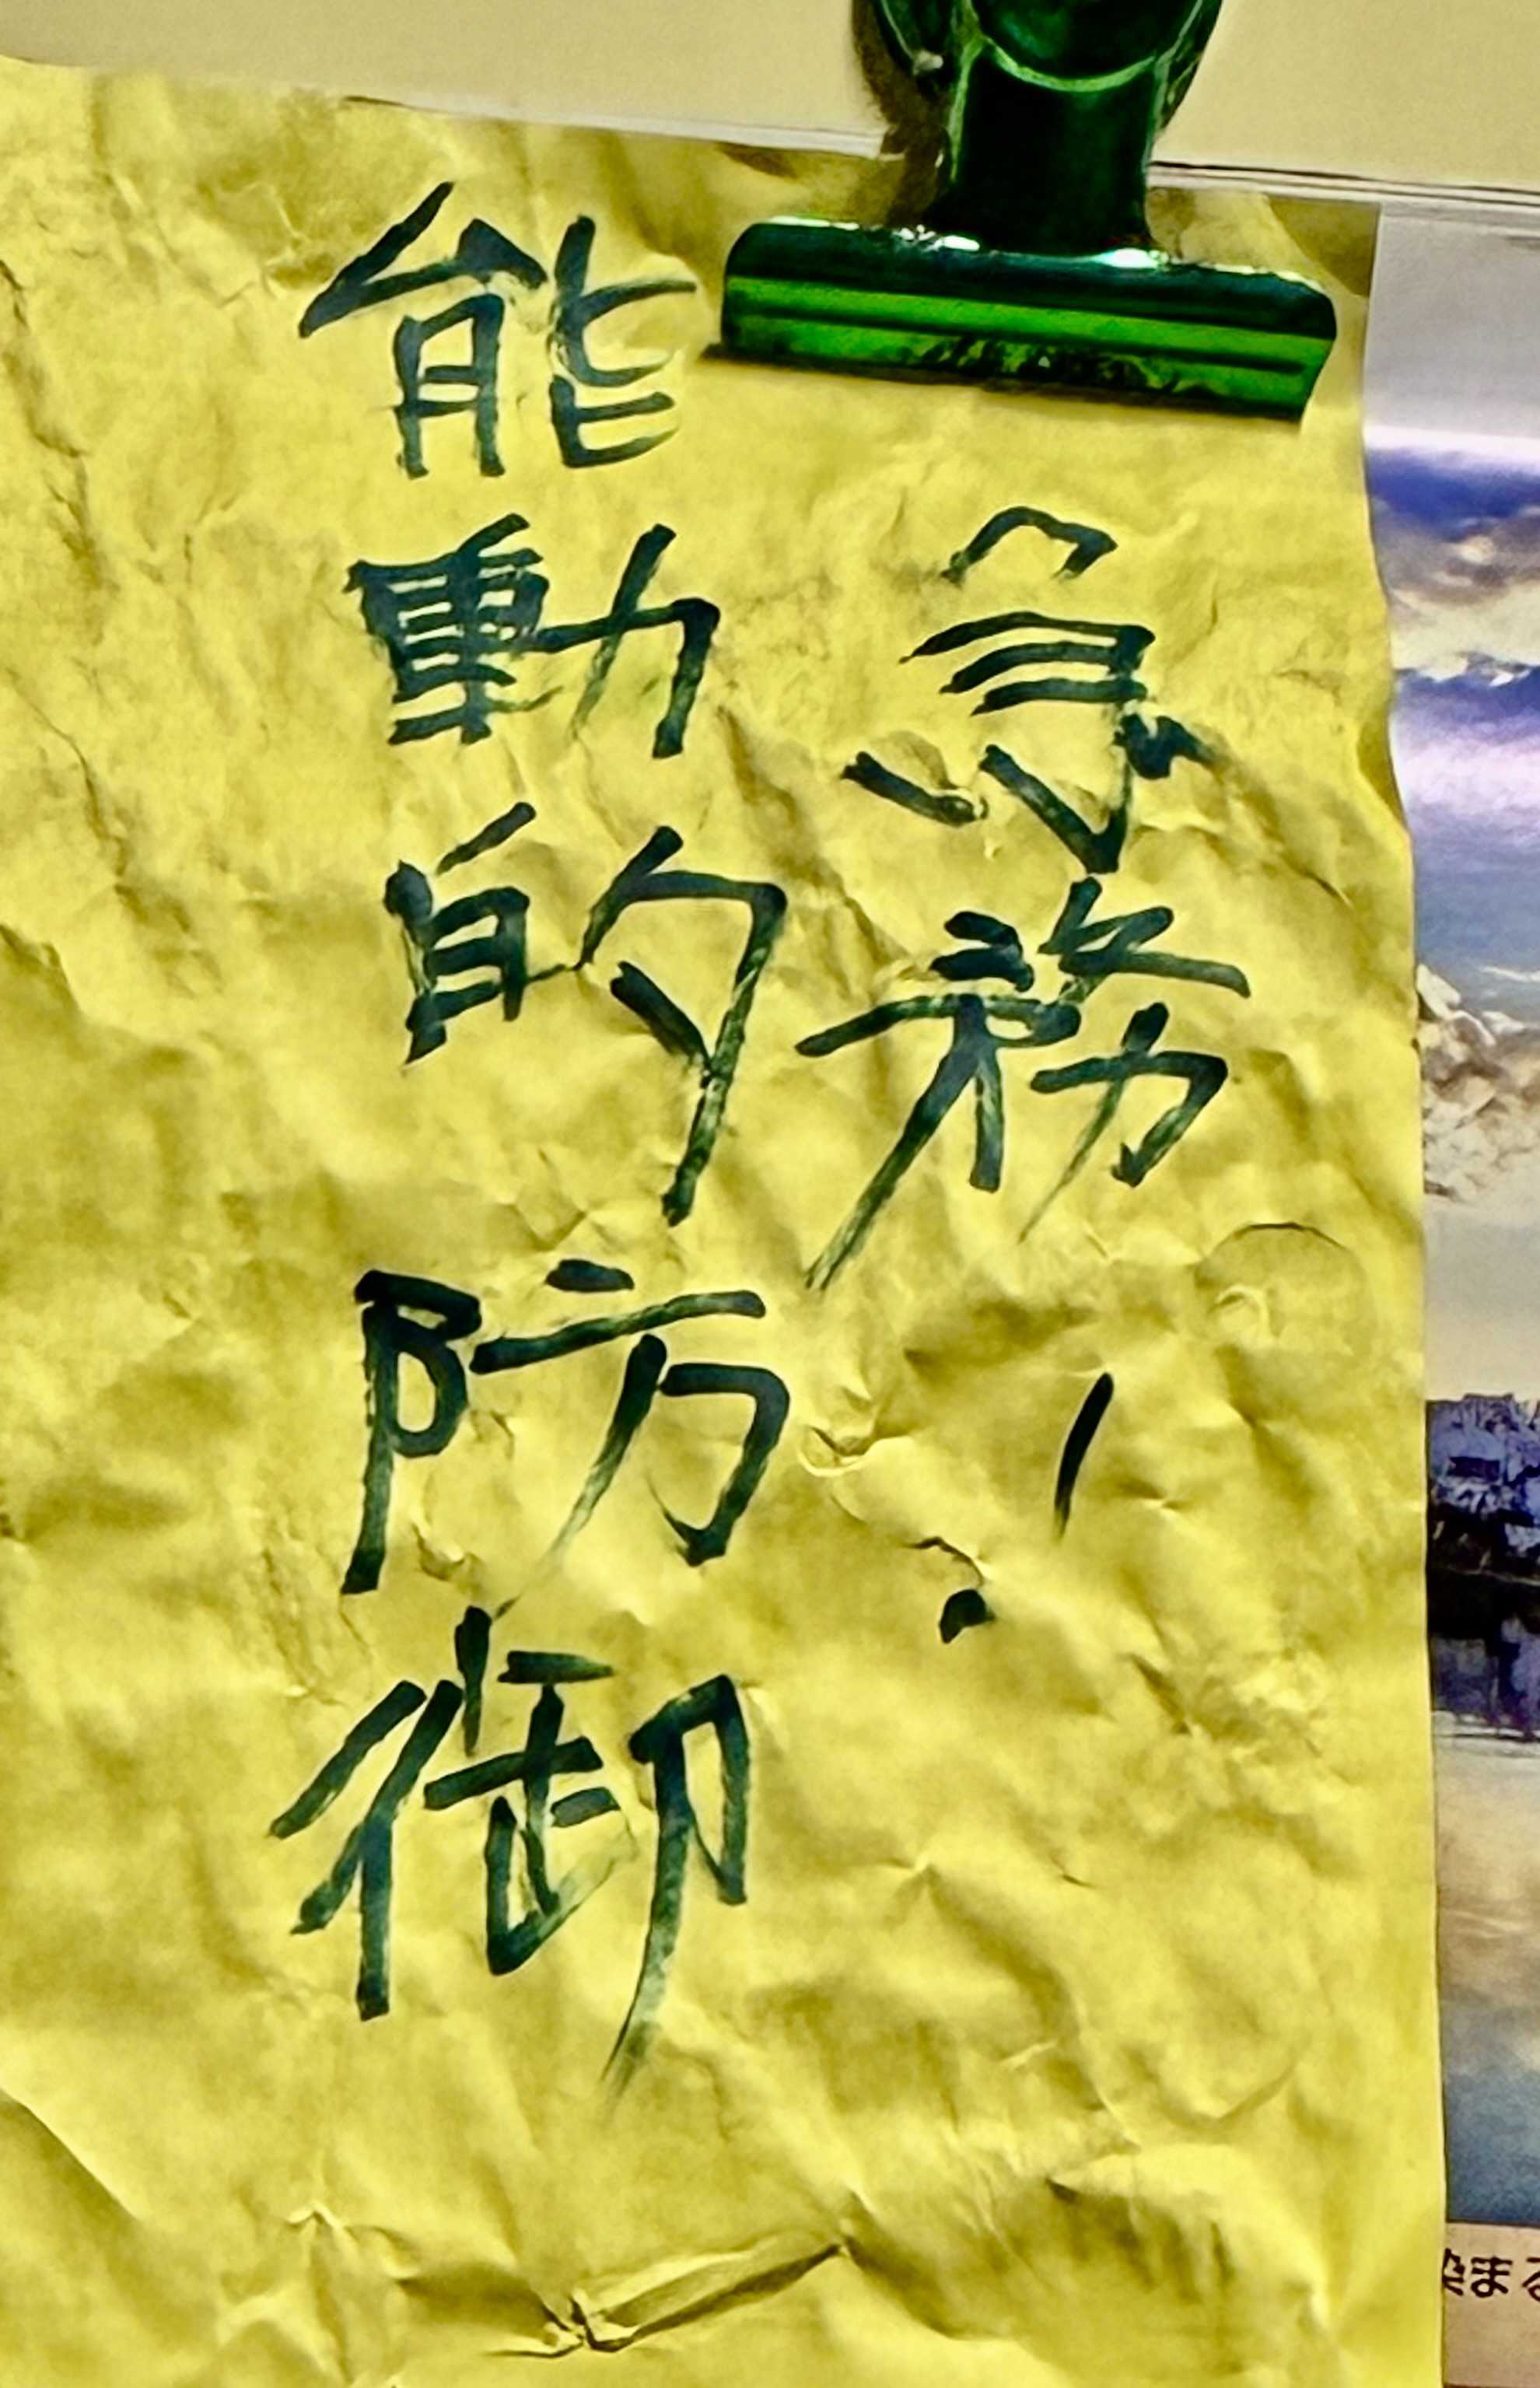 急務!
能動的防御
まる